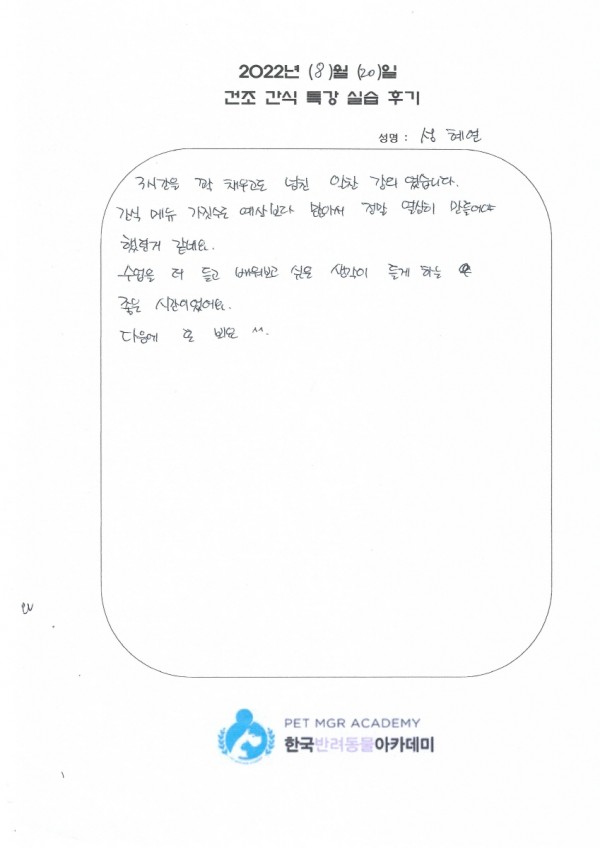 2022년 (8)월 (20)일
건조 간식 특강 실습 후기
성명 : 성혜연
3시간을 꽉 채우고도 넘친 알찬 강의 였습니다.
간식 메뉴 가짓수도 예상보다 많아서 정말 열심히 만들어야
했던거 같네요.
수업을 더 듣고 배워보고 싶은 생각이 들게 하는
좋은 시간이었어요.
다음에 또 봬요 ^^.
PET MGR ACADEMY
한국반려동물아카데미